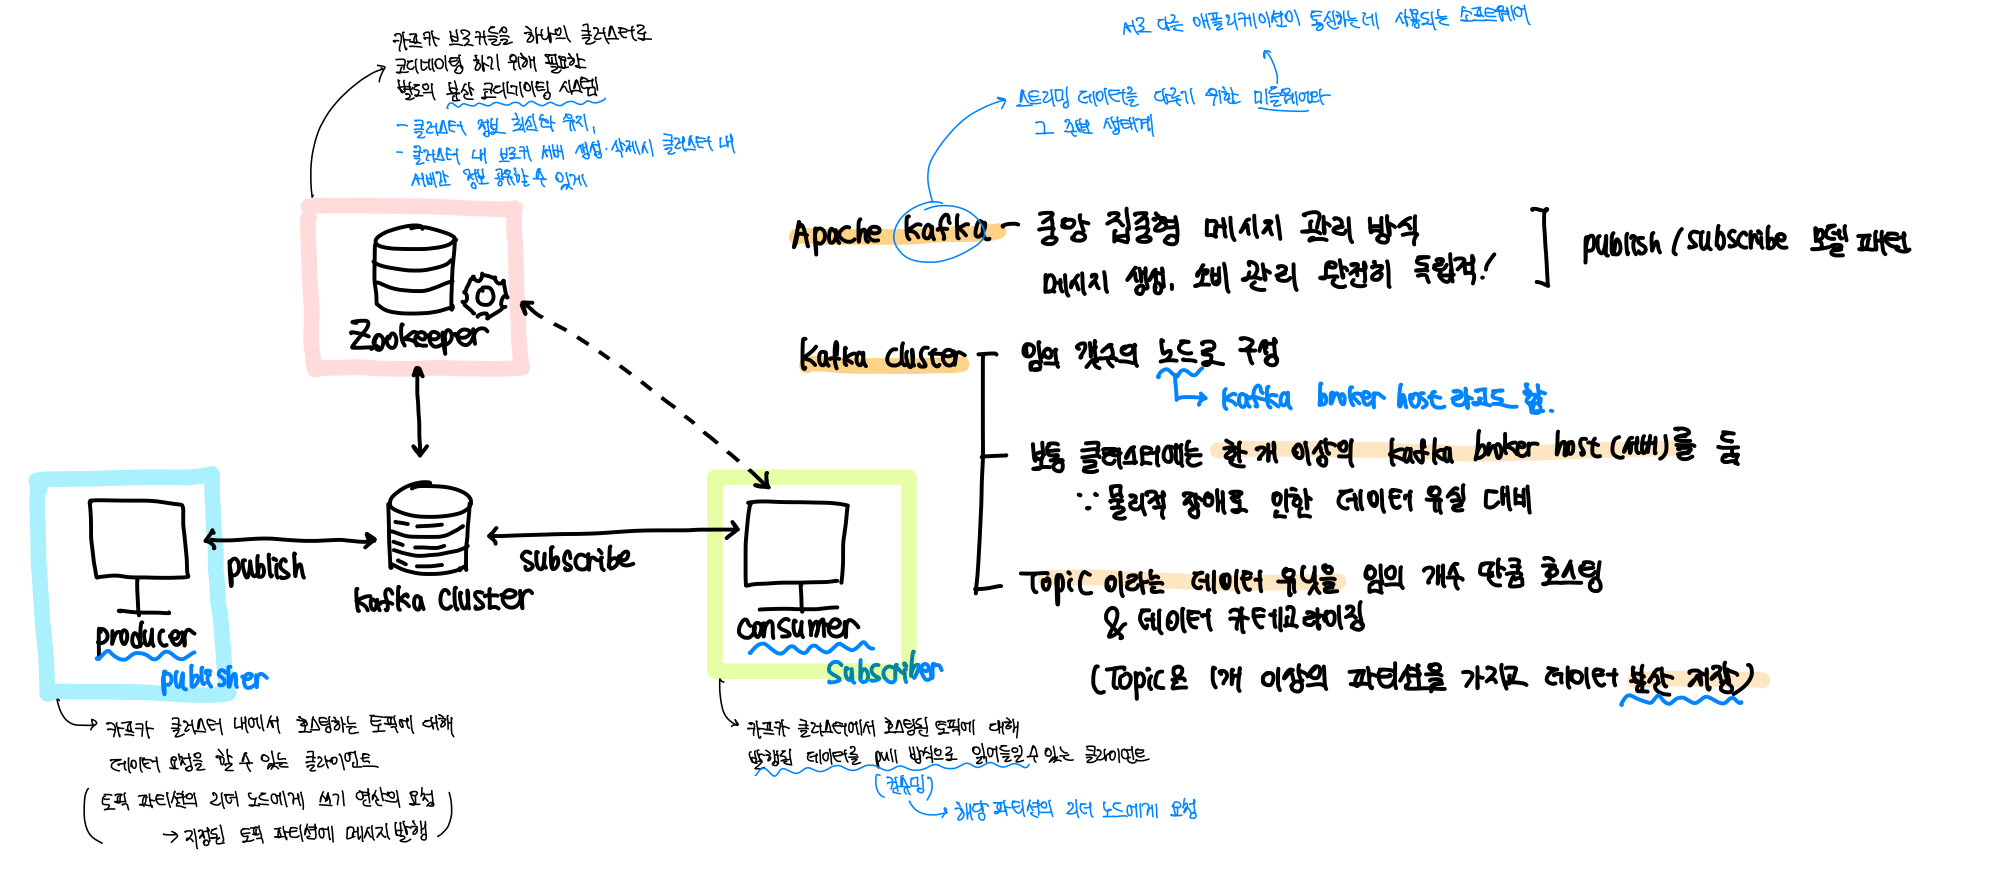 카프카 브로커들을 하나의 클러스터로
코디네이팅 하기 위해 필요한
별도의 분산 코디네이팅 시스템
- 클러스터 정보 최신화 유지,
- 클러스터 내 브로커 서버 생성·삭제시 클러스터 내
서버간 정보 공유할 수 있게
Zookeeper
publish
subscribe
kafka cluster
producer
publisher
consumer
subscriber
카프카 클러스터 내에서 호스팅하는 토픽에 대해
데이터 요청을 할 수 있는 클라이언트
(토픽 파티션의 리더 노드에게 쓰기 연산의 요청
→ 지정된 토픽 파티션에 메시지 발행)
카프카 클러스터에서 호스팅된 토픽에 대해
발행된 데이터를 pull 방식으로 읽어들일 수 있는 클라이언트
(컨슈밍)
해당 파티션의 리더 노드에게 요청
서로 다른 애플리케이션이 통신하는데 사용되는 소프트웨어
스트리밍 데이터를 다루기 위한 미들웨어와
그 주변 생태계
Apache kafka - 중앙 집중형 메시지 관리 방식
메시지 생성, 소비 관리 완전히 독립적!
publish / subscribe 모델 패턴
Kafka cluster
임의 갯수의 노드로 구성
kafka broker host 라고도 함.
보통 클러스터에는 한 개 이상의 kafka broker host (서버)를 둠
∵ 물리적 장애로 인한 데이터 유실 대비
Topic 이라는 데이터 유닛을 임의 개수 만큼 호스팅
& 데이터 카테고라이징
(Topic은 1개 이상의 파티션을 가지고 데이터 분산 저장)